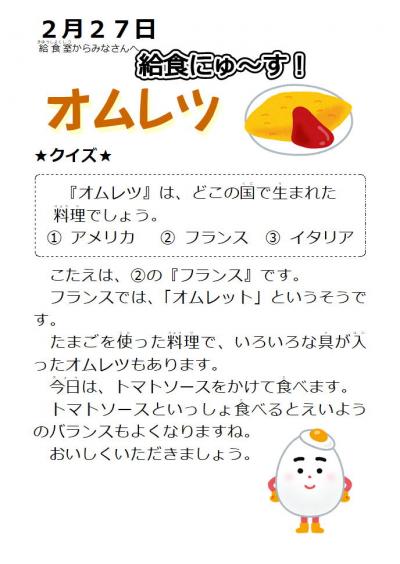 ２月２７日
給食室からみなさんへ
給食にゅ～す！
オムレツ
★クイズ★
『オムレツ』は、どこの国で生まれた
料理でしょう。
① アメリカ　② フランス　③ イタリア
こたえは、②の『フランス』です。
フランスでは、「オムレット」というそうで
す。
たまごを使った料理で、いろいろな具が入
ったオムレツもあります。
今日は、トマトソースをかけて食べます。
トマトソースといっしょ食べるとえいよう
のバランスもよくなりますね。
おいしくいただきましょう。